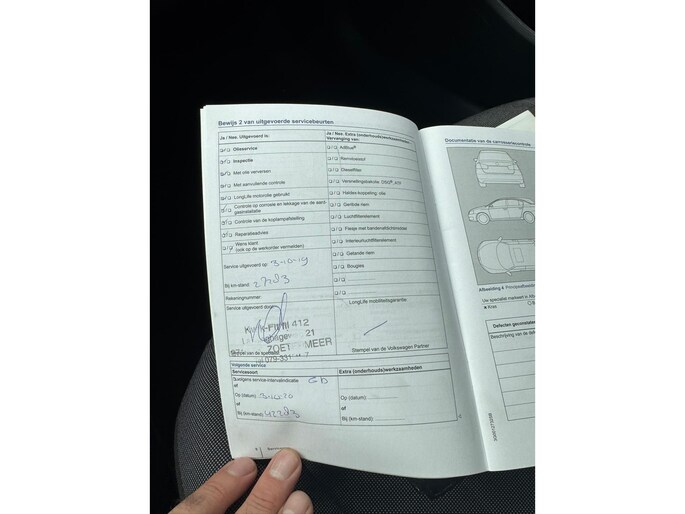 Bewijs 2 van uitgevoerde servicebeurten
Ja / Nee, Uitgevoerd is:
Olieservice
Inspectie
Met olie verversen
Met aanvullende controle
LongLife motorolie gebruikt
Controle op corrosie en lekkage van de
Controle van de koplampafstelling
Reparatieadvies
Wenst klant
(ook op de werkorder vermelden)
Service uitgevoerd op: 3-10-19
Bij km-stand: 27283
Rekeningnummer:
Service uitgevoerd door:
412
21
ZOET MEER
079-331
Stempel van de specialist
Ja / Nee, Extra (onderhouds)werkzaamheden:
Vervanging van:
AdBlue®
Remvloeistof
Dieselfilter
Versnellingsbakolie: DSG®,
Haldex-koppeling: olie
Geribde riem
Luchtfilterelement
Flesje met bandenafdichtmiddel
Interieurluchtfilterelement
Getande riem
Bougies
LongLife mobiliteitsgarantie
Stempel van de Volkswagen Partner
Volgende service
Servicesoort
Volgens service-intervalindicatie
of
Op (datum):
of
Bij (km-stand): 42283
Extra (onderhouds)werkzaamheden
Op (datum):
of
Bij (km-stand):
Documentatie van de carrosseriecontrole
Afbeelding 4
Uw specialist markeert in
Kras
Defecten geconstateerd
Beschrijving van de